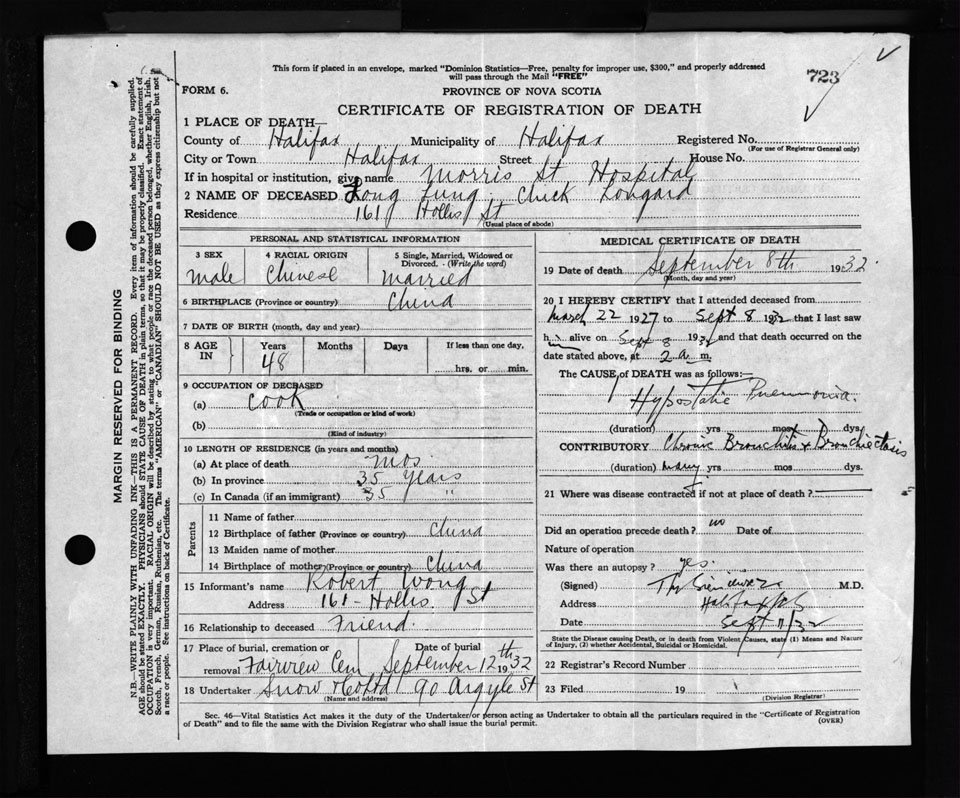 This form if placed in an envelope, marked "Dominion Statistics—Free, penalty for improper use, $300," and properly addressed
will pass through the Mail "FREE"
723
FORM 6.
PROVINCE OF NOVA SCOTIA
CERTIFICATE OF REGISTRATION OF DEATH
1 PLACE OF DEATH—
County of Halifax Municipality of Halifax Registered No.
(For use of Registrar General only)
City or Town Halifax Street House No.
If in hospital or institution, give name Morris St Hospital
2 NAME OF DECEASED Long Lung, Chick Longard
Residence 161 Hollis St
(Usual place of abode)
PERSONAL AND STATISTICAL INFORMATION
3 SEX 4 RACIAL ORIGIN 5 Single, Married, Widowed or
Divorced. - (Write the word)
Male Chinese Married
6 BIRTHPLACE (Province or country) China
7 DATE OF BIRTH (month, day and year)
8 AGE IN Years Months Days If less than one day,
48 hrs. or min.
9 OCCUPATION OF DECEASED
(a) Cook
(Trade or occupation or kind of work)
(b)
(Kind of industry)
10 LENGTH OF RESIDENCE (in years and months)
(a) At place of death mos
(b) In province 35 years
(c) In Canada (if an immigrant) 35 "
Parents
11 Name of father
12 Birthplace of father (Province or country) China
13 Maiden name of mother
14 Birthplace of mother (Province or country) China
15 Informant's name Robert Wong
Address 161 - Hollis. St
16 Relationship to deceased Friend.
17 Place of burial, cremation or Date of burial
removal Fairview Cem September 12th 1932
18 Undertaker Snow & Co Ltd 90 Argyle St
(Name and address)
MEDICAL CERTIFICATE OF DEATH
19 Date of death September 8th 1932.
(Month, day and year)
20 I HEREBY CERTIFY that I attended deceased from
March 22 1927 to Sept 8 1932 that I last saw
him alive on Sept 8 1932 and that death occurred on the
date stated above, at 2 a m.
The CAUSE of DEATH was as follows:—
Hypostatic Pneumonia.
(duration) yrs mos dys.
CONTRIBUTORY Chronic Bronchitis & Bronchiectasis
(duration) many yrs mos dys.
21 Where was disease contracted if not at place of death?
Did an operation precede death? no Date of
Nature of operation
Was there an autopsy? yes.
(Signed) M.D.
Address Halifax NS
Date Sept 11/32
State the Disease causing Death, or in death from Violent Causes, state (1) Means and Nature
of Injury, (2) whether Accidental, Suicidal or Homicidal.
22 Registrar's Record Number
23 Filed 19
(Division Registrar)
Sec. 46—Vital Statistics Act makes it the duty of the Undertaker or person acting as Undertaker to obtain all the particulars required in the "Certificate of Registration
of Death" and to file the same with the Division Registrar who shall issue the burial permit. (OVER)
MARGIN RESERVED FOR BINDING
N.B.—WRITE PLAINLY WITH UNFADING INK—THIS IS A PERMANENT RECORD. Every item of information should be carefully supplied.
AGE should be stated EXACTLY. PHYSICIANS should STATE CAUSE OF DEATH in plain terms, so that it may be properly classified. Exact statement of
OCCUPATION is very important. RACIAL ORIGIN will be described by stating to what people or race the deceased person belonged, whether English, Irish,
Scotch, French, German, Russian, Ruthenian, etc. The terms "AMERICAN" or "CANADIAN" SHOULD NOT BE USED as they express citizenship but not
a race or people. See instructions on back of Certificate.